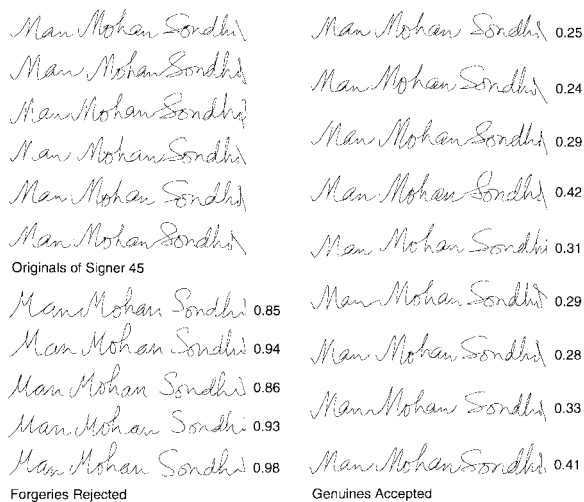 Man Mohan Sondhi
Man Mohan Sondhi
Man Mohan Sondhi
Man Mohan Sondhi
Man Mohan Sondhi
Man Mohan Sondhi
Originals of Signer 45
Man Mohan Sondhi 0.85
Man Mohan Sondhi 0.94
Man Mohan Sondhi 0.86
Man Mohan Sondhi 0.93
Man Mohan Sondhi 0.98
Forgeries Rejected
Man Mohan Sondhi 0.25
Man Mohan Sondhi 0.24
Man Mohan Sondhi 0.29
Man Mohan Sondhi 0.42
Man Mohan Sondhi 0.31
Man Mohan Sondhi 0.29
Man Mohan Sondhi 0.28
Man Mohan Sondhi 0.33
Man Mohan Sondhi 0.41
Genuines Accepted